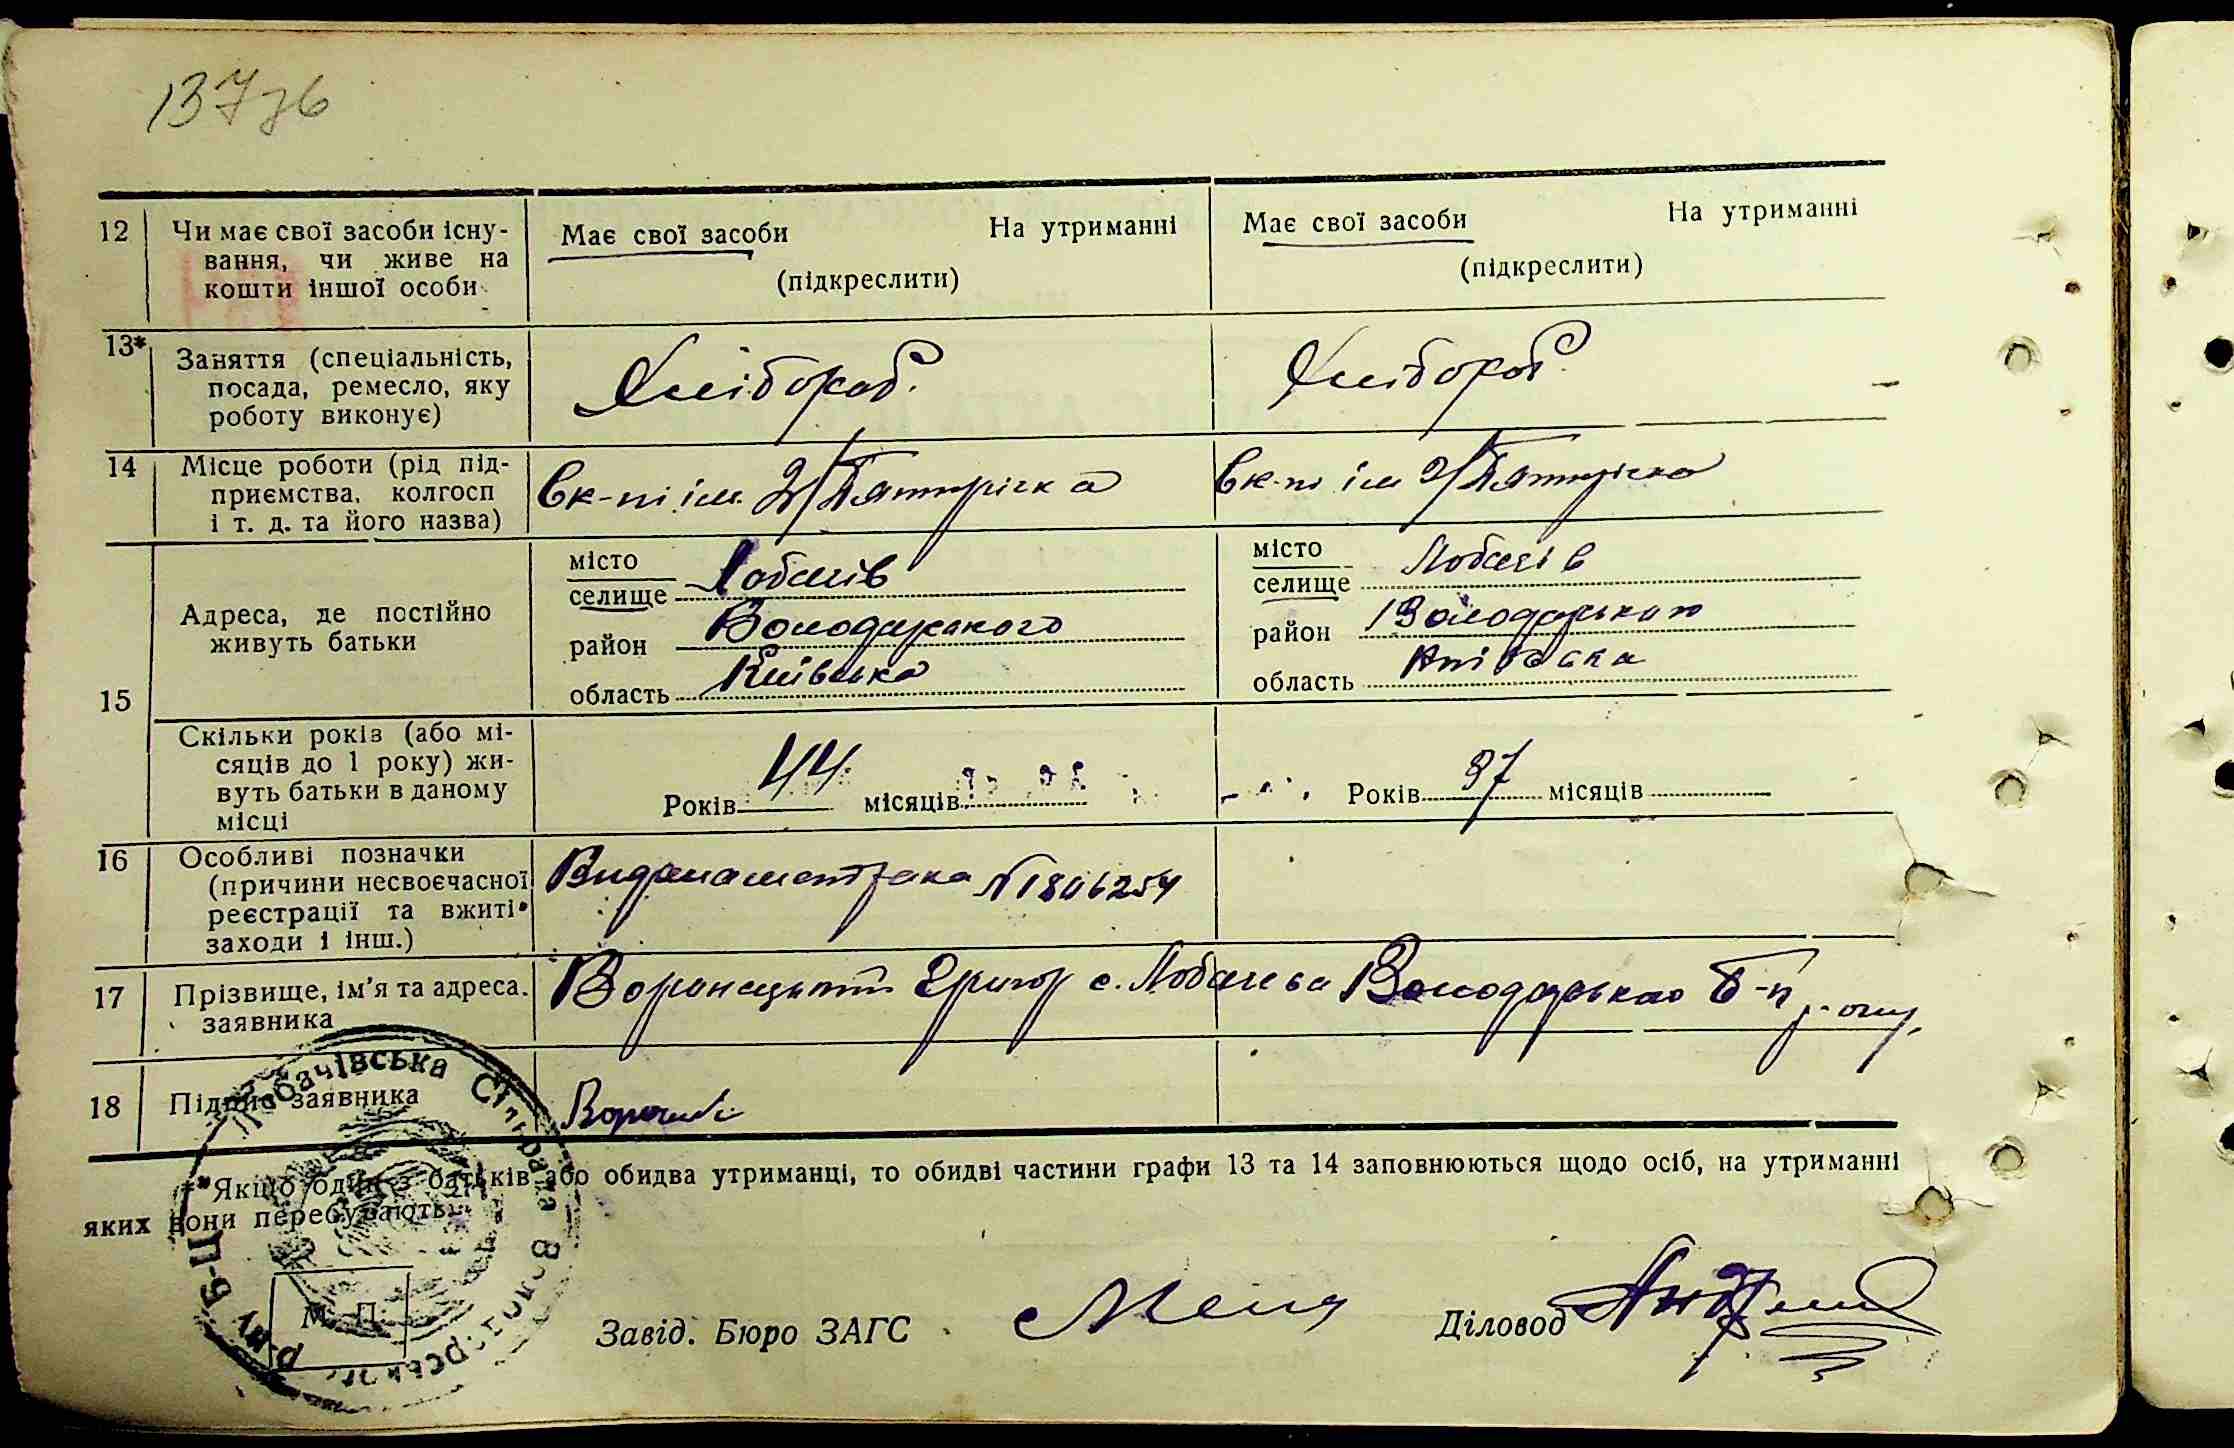 137зв
12 Чи має свої засоби існу-
вання, чи живе на
кошти іншої особи
Має свої засоби На утриманні
(підкреслити)
Має свої засоби На утриманні
(підкреслити)
13* Заняття (спеціальність,
посада, ремесло, яку
роботу виконує)
Хлібороб.
Хлібороб.
14 Місце роботи (рід під-
приємства, колгосп
і т. д. та його назва)
в к-пі ім. 2/Пятирічка
в к-пі ім 2/Пятирічка
15 Адреса, де постійно
живуть батьки
місто
селище Лобачів
район Володарського
область Київська
місто
селище Лобачів
район Володарського
область Київська
Скільки років (або мі-
сяців до 1 року) жи-
вуть батьки в даному
місці
Років 44 місяців
Років 37 місяців
16 Особливі позначки
(причини несвоєчасної
реєстрації та вжиті
заходи і інш.)
Видана метрика № 1806254
17 Прізвище, ім'я та адреса
заявника
Григор с. Лобачева Володарського
18 Підпис заявника
*Якщо один з батьків або обидва утриманці, то обидві частини графи 13 та 14 заповнюються щодо осіб, на утриманні
яких вони перебувають.
Лобачівська Сільрада Володарського р-ну Б-Ц
М. П.
Завід. Бюро ЗАГС
Діловод